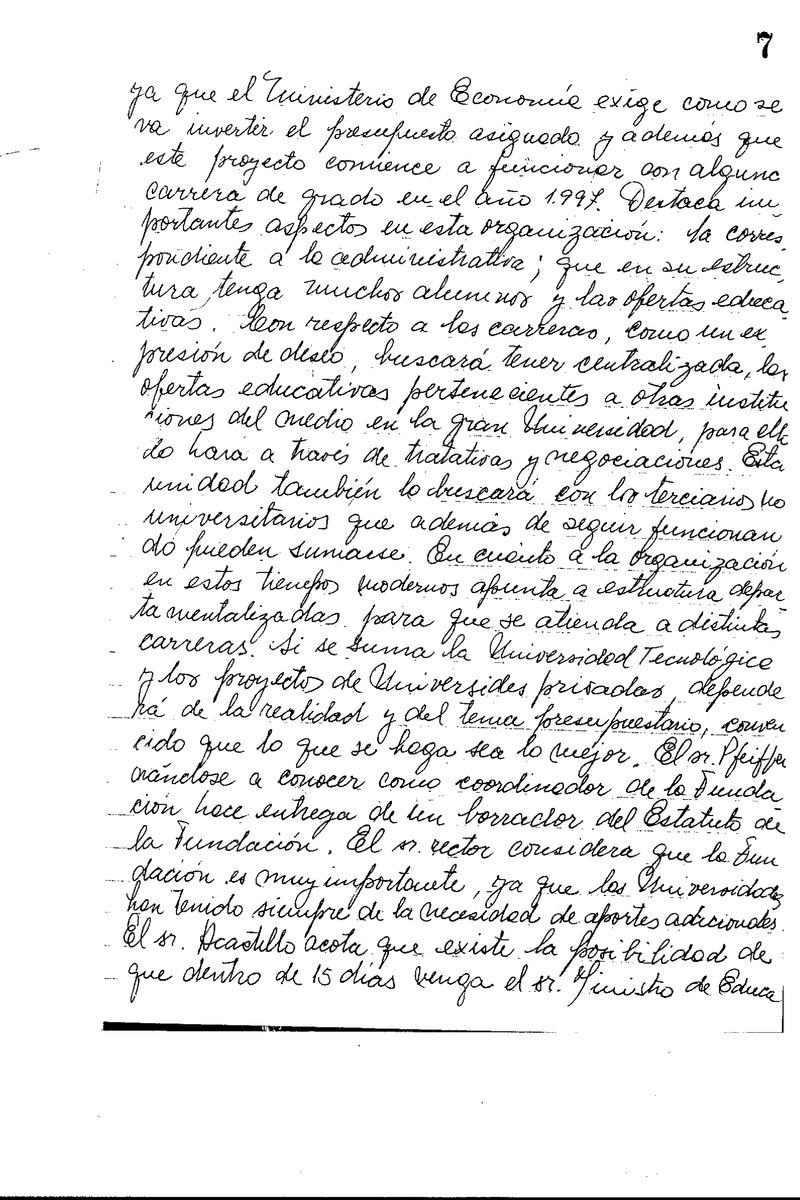 7
ya que el Ministerio de Economía exige como se
va invertir el presupuesto asignado y además que
este proyecto comience a funcionar con alguna
carrera de grado en el año 1.997. Destaca im
portantes aspectos en esta organización: la corres
pondiente a lo administrativa; que en su estruc
tura, tenga muchos alumnos y las ofertas educa
tivas. Con respecto a las carreras, como un ex
presión de deseo, buscará tener centralizada, las
ofertas educativas pertenecientes a otras institu
ciones del medio en la gran Universidad, para ello
lo hara a través de tratativas y negociaciones. Esta
unidad también lo buscará con los terciarios no
universitarios que además de seguir funcionan
do pueden sumarse. En cuánto a la organización
en estos tiempos modernos apunta a estructura depar
tamentalizadas para que se atienda a distintas
carreras. Si se suma la Universidad Tecnológica
y los proyectos de Universides privadas, depende
rá de la realidad y del tema presupuestario, conven
cido que lo que se haga sea lo mejor. El sr. Pfeiffer
dándose a conocer como coordinador de la Funda
ción hace entrega de un borrador del Estatuto de
la Fundación. El sr. rector considera que la Fun
dación es muy importante, ya que las Universidades
han tenido siempre de la necesidad de aportes adicionales.
El sr. Acastello acota que existe la posibilidad de
que dentro de 15 días venga el sr. Ministro de Educa